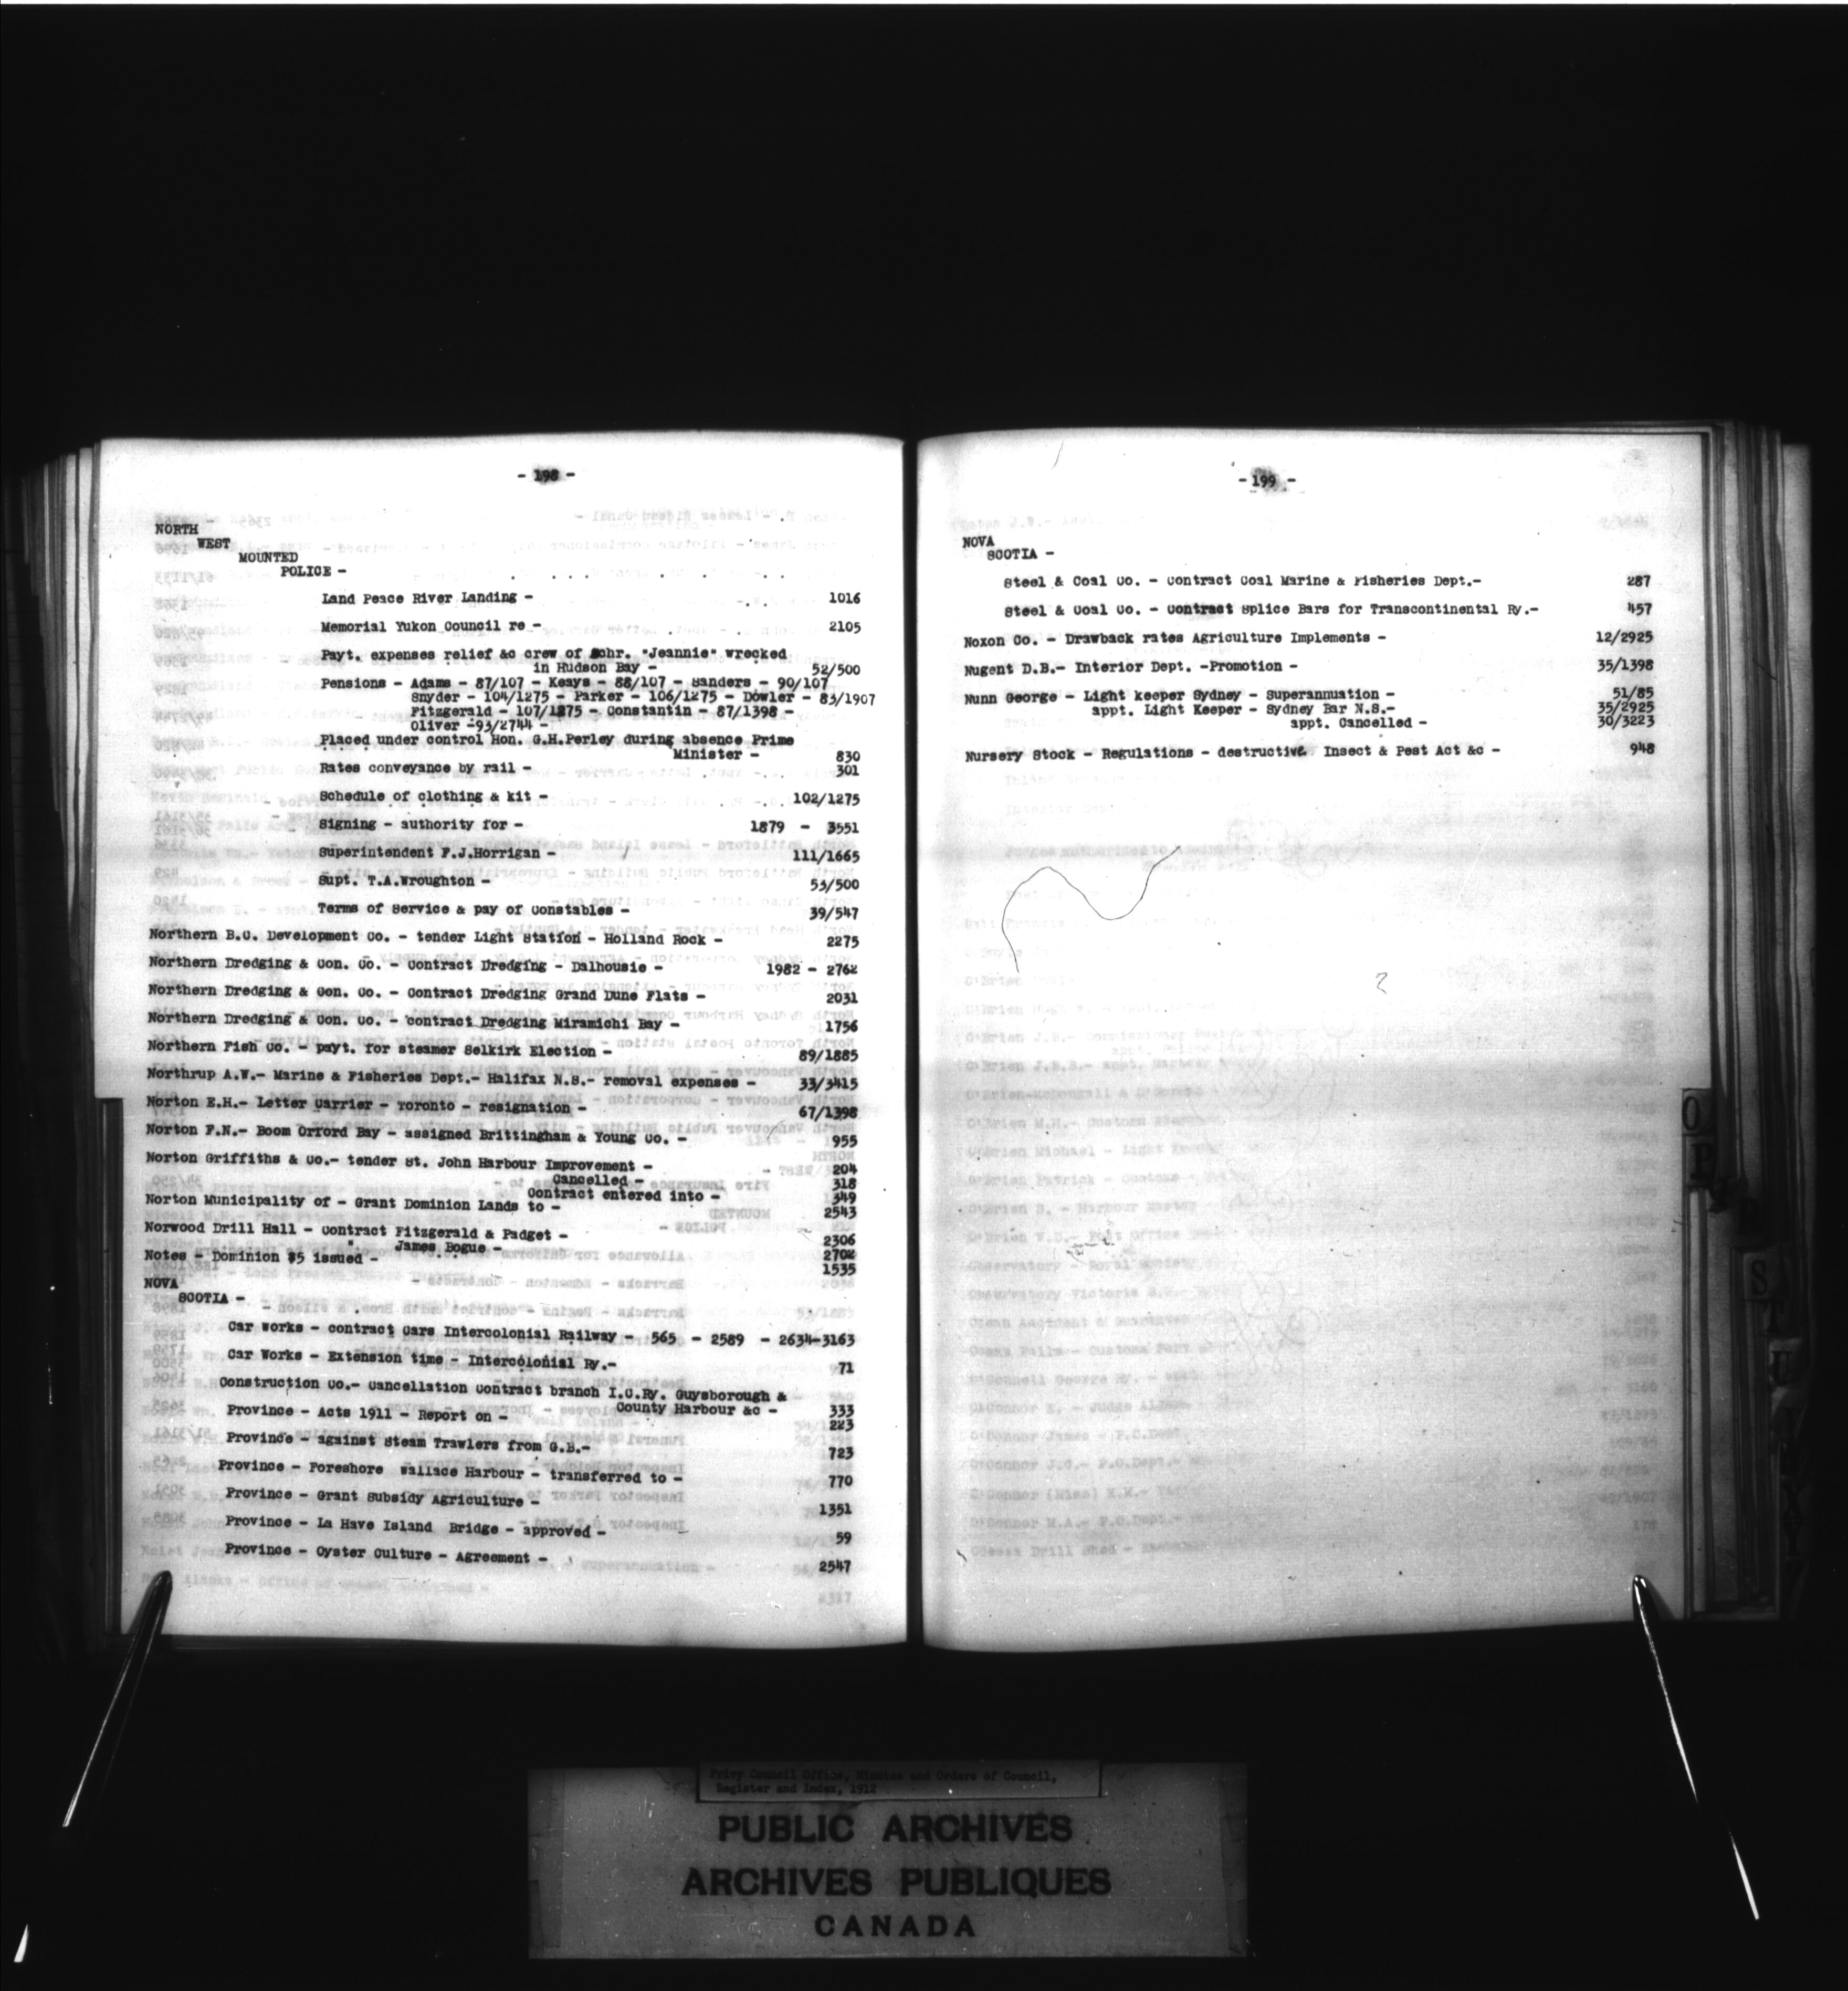 - 198 -
NORTH
WEST
MOUNTED
POLICE -
Land Peace River Landing - 1016
Memorial Yukon Council re - 2105
Payt. expenses relief &c crew of Schr. "Jeannie" wrecked
in Hudson Bay - 52/500
Pensions - Adams - 87/107 - Keays - 88/107 - Sanders - 90/107
Snyder - 104/1275 - Parker - 106/1275 - Dowler - 83/1907
Fitzgerald - 107/1275 - Constantin - 87/1398 -
Oliver -93/2744 -
Placed under control Hon. G.H.Perley during absence Prime
Minister - 830
Rates conveyance by rail - 301
Schedule of clothing & kit - 102/1275
Signing - authority for - 1879 - 3551
Superintendent F.J.Horrigan - 111/1665
Supt. T.A.Wroughton - 53/500
Terms of Service & pay of Constables - 39/547
Northern B.C. Development Co. - tender Light Station - Holland Rock - 2275
Northern Dredging & Con. Co. - Contract Dredging - Dalhousie - 1982 - 2762
Northern Dredging & Con. Co. - Contract Dredging Grand Dune Flats - 2031
Northern Dredging & Con. Co. - contract Dredging Miramichi Bay - 1756
Northern Fish Co. - payt. for steamer Selkirk Election - 89/1885
Northrup A.W.- Marine & Fisheries Dept.- Halifax N.S.- removal expenses - 33/3415
Norton E.H.- Letter Carrier - Toronto - resignation - 67/1398
Norton F.N.- Boom Orford Bay - assigned Brittingham & Young Co. - 955
Norton Griffiths & Co.- tender St. John Harbour Improvement - 204
Cancelled - 318
Contract entered into - 349
Norton Municipality of - Grant Dominion Lands to - 2543
Norwood Drill Hall - Contract Fitzgerald & Padget - 2306
" James Bogue - 2702
Notes - Dominion $5 issued - 1535
NOVA
SCOTIA -
Car Works - contract Cars Intercolonial Railway - 565 - 2589 - 2634-3163
Car Works - Extension time - Intercolonial Ry.- 71
Construction Co.- Cancellation Contract branch I.C.Ry. Guysborough &
County Harbour &c - 333
Province - Acts 1911 - Report on - 223
Province - against Steam Trawlers from G.B.- 723
Province - Foreshore Wallace Harbour - transferred to - 770
Province - Grant Subsidy Agriculture - 1351
Province - La Have Island Bridge - approved - 59
Province - Oyster Culture - Agreement - 2547
- 199 -
NOVA
SCOTIA -
Steel & Coal Co. - Contract Coal Marine & Fisheries Dept.- 287
Steel & Coal Co. - Contract Splice Bars for Transcontinental Ry.- 457
Noxon Co. - Drawback rates Agriculture Implements - 12/2925
Nugent D.B.- Interior Dept. -Promotion - 35/1398
Nunn George - Light keeper Sydney - Superannuation - 51/85
appt. Light Keeper - Sydney Bar N.S.- 35/2925
appt. Cancelled - 30/3223
Nursery Stock - Regulations - destructive Insect & Pest Act &c - 948
O
S
T
U
Privy Council Office, Minutes and Orders of Council,
Register and Index, 1912
PUBLIC ARCHIVES
ARCHIVES PUBLIQUES
CANADA